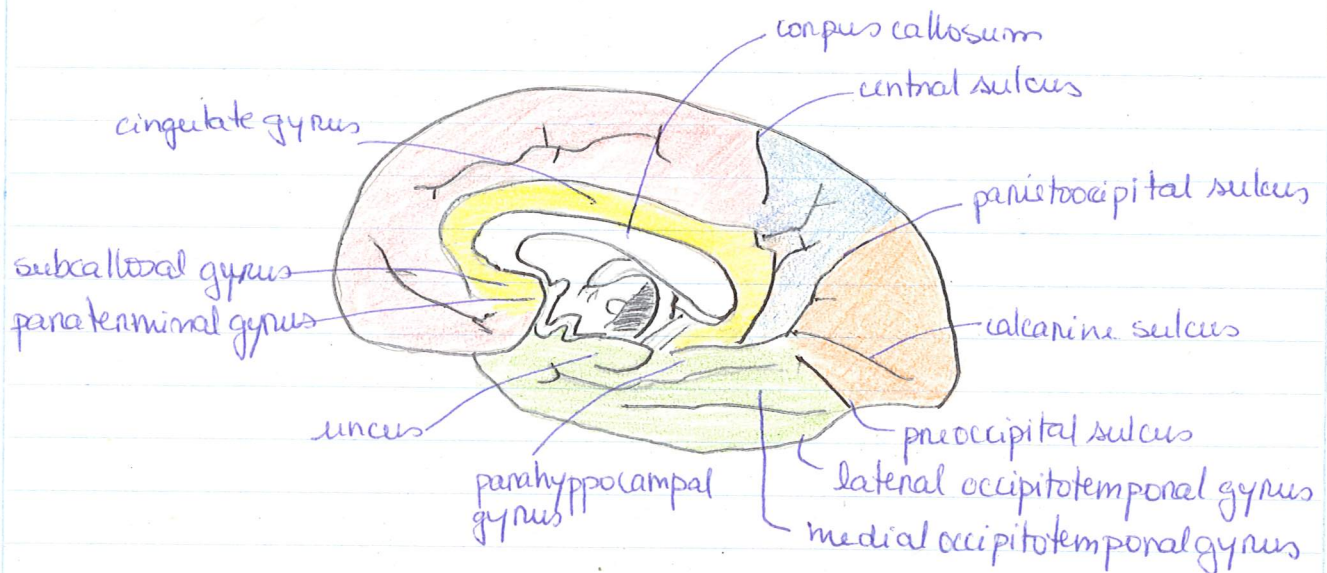 corpus callosum
central sulcus
cingulate gyrus
parietooccipital sulcus
subcallosal gyrus
paraterminal gyrus
calcarine sulcus
uncus
preoccipital sulcus
parahyppocampal
gyrus
lateral occipitotemporal gyrus
medial occipitotemporal gyrus